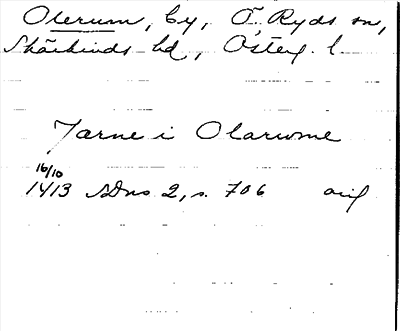 Olerum, by, Ö. Ryds sn,
Skärkinds hd, Österg. l.
Jarne i Olarwme
16/10
1413 SDns 2, s. 706 orig